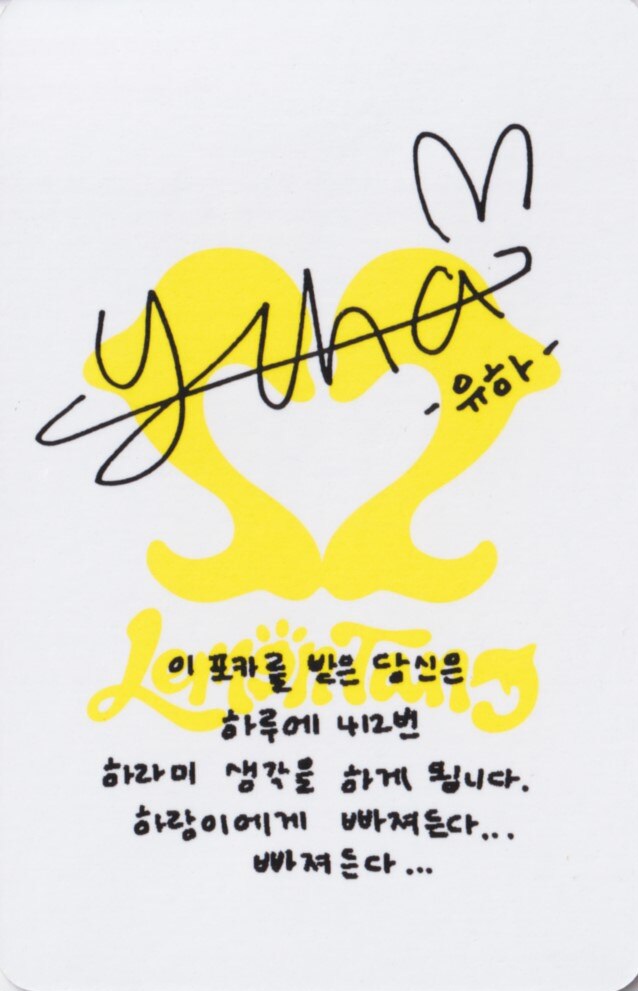 yuha
-유하-
Lemon Tang
이 포카를 받은 당신은
하루에 412번
하라미 생각을 하게 됩니다.
하랑이에게 빠져든다...
빠져든다...